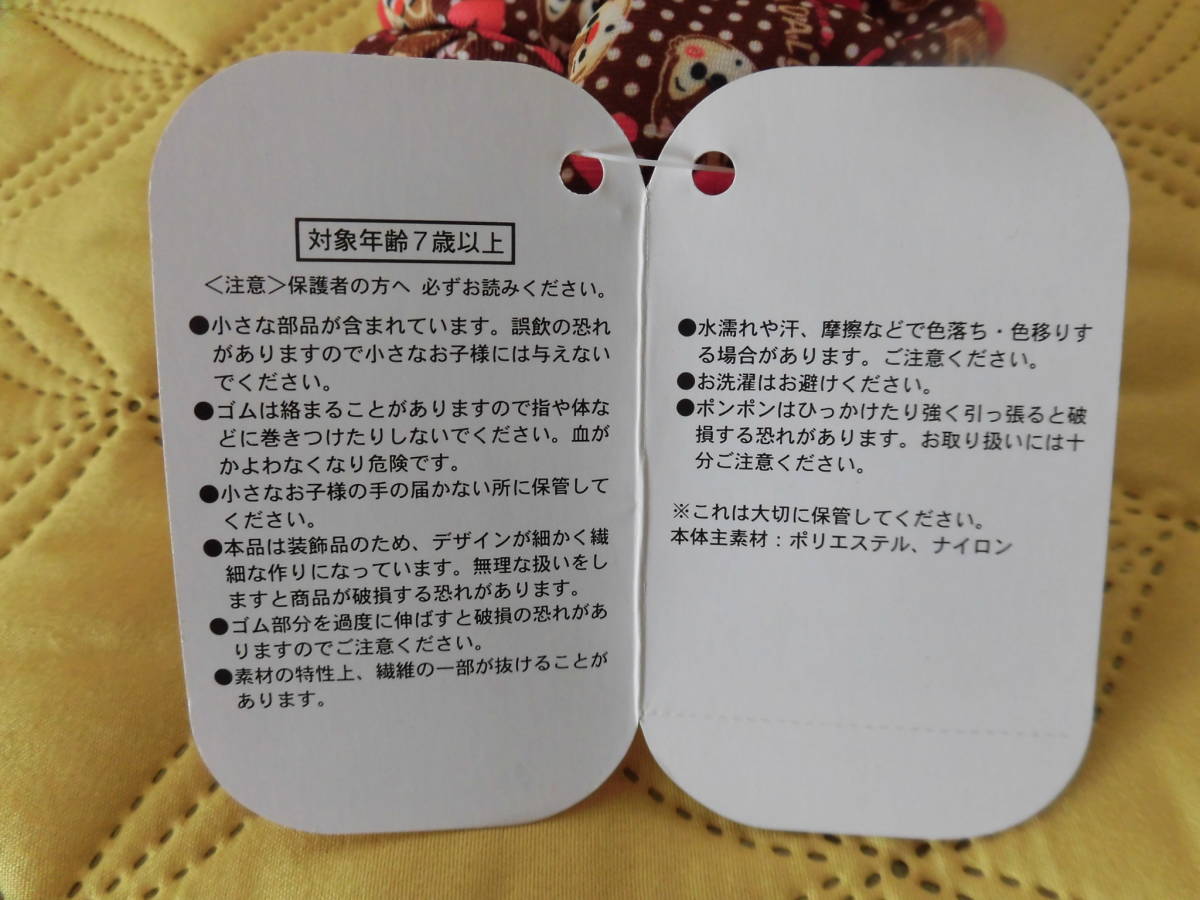 対象年齢7歳以上
＜注意＞保護者の方へ 必ずお読みください。
●小さな部品が含まれています。誤飲の恐れ
がありますので小さなお子様には与えない
でください。
●ゴムは絡まることがありますので指や体な
どに巻きつけたりしないでください。血が
かよわなくなり危険です。
●小さなお子様の手の届かない所に保管して
ください。
●本品は装飾品のため、デザインが細かく繊
細な作りになっています。無理な扱いをし
ますと商品が破損する恐れがあります。
●ゴム部分を過度に伸ばすと破損の恐れがあ
りますのでご注意ください。
●素材の特性上、繊維の一部が抜けることが
あります。
●水濡れや汗、摩擦などで色落ち・色移りす
る場合があります。ご注意ください。
●お洗濯はお避けください。
●ポンポンはひっかけたり強く引っ張ると破
損する恐れがあります。お取り扱いには十
分ご注意ください。
※これは大切に保管してください。
本体主素材：ポリエステル、ナイロン